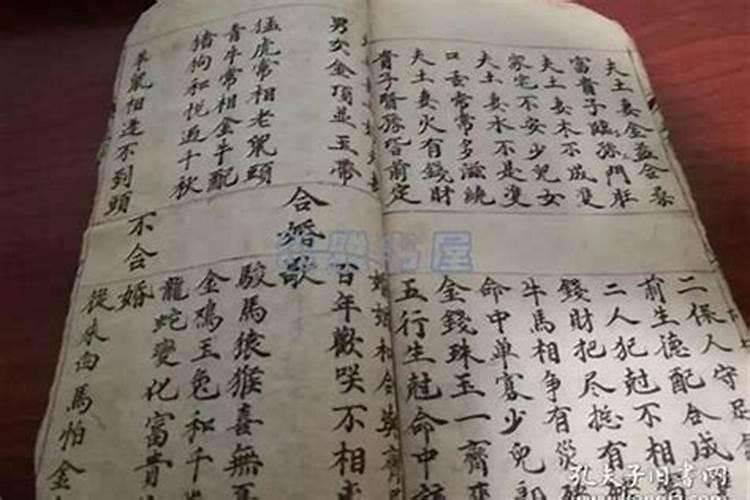 夫土妻金益合
富貴子臨孫門
夫土妻木不成雙
家宅不安少兒女
夫土妻水不是雙
口舌常常多滋繞
夫土妻火有錢財
貴子賢孫皆前定
二保人守足
前生德配合成
二人犯尅不相
錢財把尽總有
牛馬相争有災
命中单寡少兒郎
金錢珠玉一齊來
五行生尅命中該
婚姻和合
男女金項並玉帶
百年歡咲不相
合婚歌
猛虎常相老鼠頭
駿馬猿猴喜無
青牛常相金牛配
金鴻玉兔和千
猪狗和悦過千秋
龍蛇變化富貴
不合婚
羊鼠相逢不到頭
從来白馬怕金
书屋
孔夫子旧书网